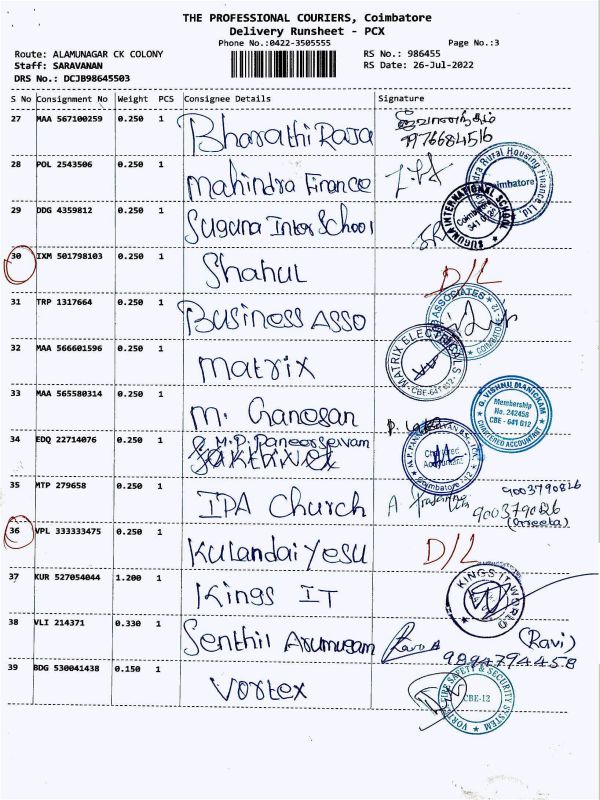 THE PROFESSIONAL COURIERS, Coimbatore
Delivery Runsheet - PCX
Phone No.:0422-3505555
Page No.:3
Route: ALAMUNAGAR CK COLONY
RS No.: 986455
Staff: SARAVANAN
RS Date: 26-Jul-2022
DRS No.: DCJB98645503
S No Consignment No Weight PCS Consignee Details Signature
27 MAA 567100259 0.250 1 Bharathi Raja
9976684516
28 POL 2543506 0.250 1 Mahindra Finance
Rural Housing Finance Ltd.
Coimbatore
29 DDG 4359812 0.250 1 Suguna Inter School
SUGUNA INTERNATIONAL SCHOOL
30 IXM 501798103 0.250 1 Shahul D/L
31 TRP 1317664 0.250 1 Business Asso
ASSOCIATES
32 MAA 566601596 0.250 1 Matrix
MATRIX ELECTRICALS
CBE-641 012
33 MAA 565580314 0.250 1 M. Ganesan
G. VISHNU MANICKAM
Membership
No. 242458
CBE - 641 012
CHARTERED ACCOUNTANT
34 EDQ 22714076 0.250 1 M.P. Paneerselvam
Chartered
Accountant
Coimbatore
35 MTP 279658 0.250 1 IPA Church
9003790826
9003790826
(Preeta)
36 VPL 333333475 0.250 1 Kulandai Yesu D/L
37 KUR 527054044 1.200 1 Kings IT
KINGS IT WORLD
38 VLI 214371 0.330 1 Senthil Arumugam
(Ravi)
9894794458
39 BDG 530041438 0.150 1 Vortex
VORTEX FIRE SAFETY & SECURITY SYSTEM
CBE-12